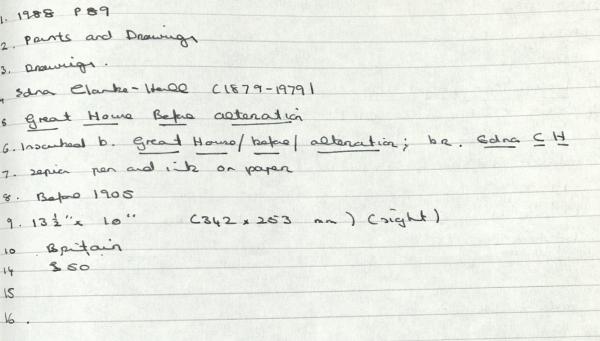 1. 1988 P89
2. Paints and Drawings
3. Drawings.
4 Edna Clarke-Hall (1879-1979)
5 Great House Before alteration
6. Inscribed b. Great House/before/alteration; br. Edna C H
7. sepia pen and ink on paper
8. Before 1905
9. 13½" x 10" (342 x 253 mm) (sight)
10 Britain
14 $50
15
16.